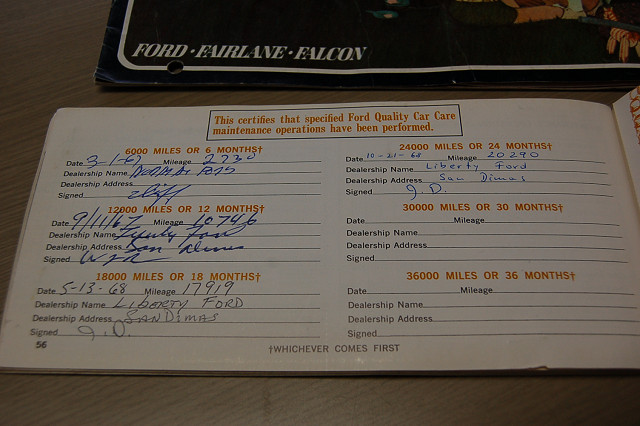 FORD · FAIRLANE · FALCON
This certifies that specified Ford Quality Car Care
maintenance operations have been performed.
6000 MILES OR 6 MONTHS†
Date 3-1-67 Mileage 2730
Dealership Name
Dealership Address
Signed
12000 MILES OR 12 MONTHS†
Date 9/11/67 Mileage 10746
Dealership Name Ford
Dealership Address San Dimas
Signed
18000 MILES OR 18 MONTHS†
Date 5-13-68 Mileage 17919
Dealership Name LIBERTY FORD
Dealership Address SAN DIMAS
Signed J.D.
56
24000 MILES OR 24 MONTHS†
Date 10-21-68 Mileage 20290
Dealership Name Liberty Ford
Dealership Address San Dimas
Signed J.D.
30000 MILES OR 30 MONTHS†
Date Mileage
Dealership Name
Dealership Address
Signed
36000 MILES OR 36 MONTHS†
Date Mileage
Dealership Name
Dealership Address
Signed
†WHICHEVER COMES FIRST